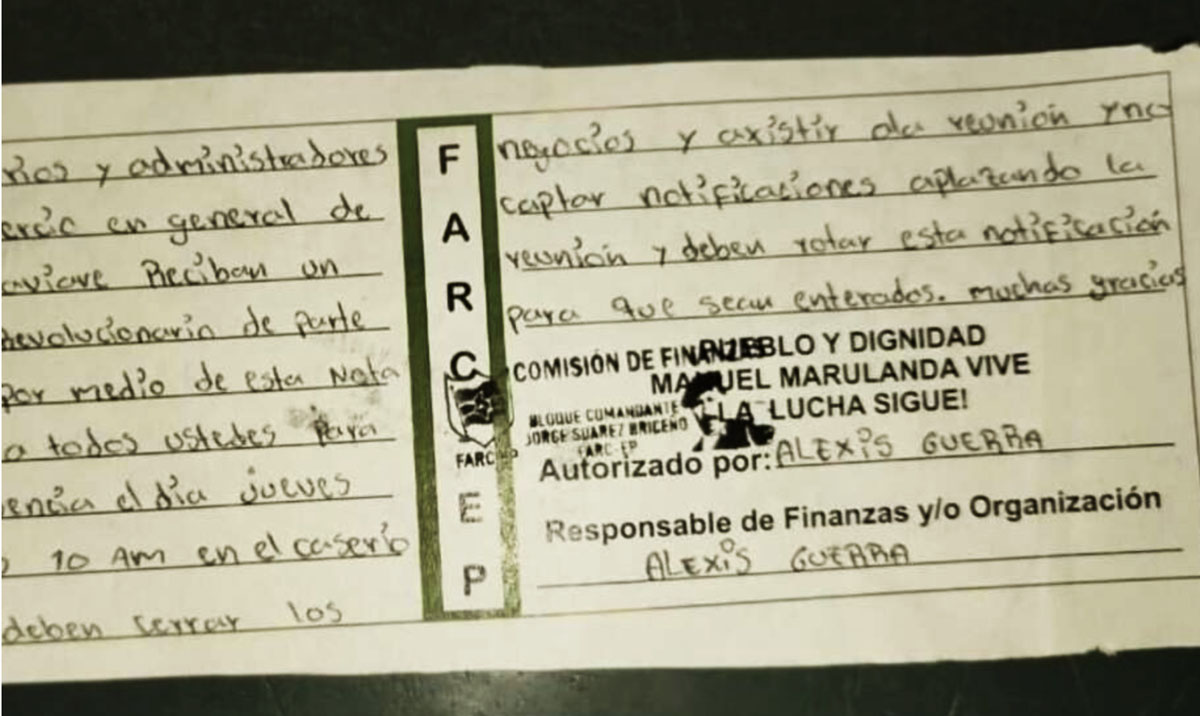 rios y administradores
ercio en general de
aviare Reciban un
Revolucionario de parte
Por medio de esta Nota
a todos ustedes para
encia el dia jueves
10 AM en el caserio
deben cerrar los
FARC EP
negocios y axistir ala reunión y no
captar notificaciones aplazando la
reunión y deben rotar esta notificación
para que sean enterados. muchas gracias
COMISIÓN DE FINANZAS
PUEBLO Y DIGNIDAD
MANUEL MARULANDA VIVE
LA LUCHA SIGUE!
BLOQUE COMANDANTE
JORGE SUAREZ BRICEÑO
FARC-EP
FARC-EP
Autorizado por: ALEXIS GUERRA
Responsable de Finanzas y/o Organización
ALEXIS GUERRA